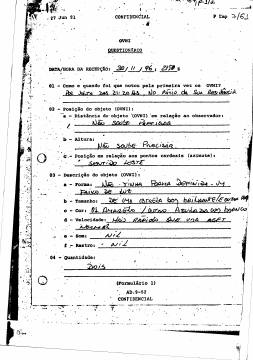 27 Jun 91 CONFIDENCIAL P Exp 3/61
OVNI
QUESTIONÁRIO
DATA/HORA DA RECEPÇÃO: 30/11/96, 2150
01 - Como e quando foi que notou pela primeira vez os OVNI?
Por volta das 21:20, no pátio de sua residência
02 - Posição do objeto (OVNI):
a - Distância do objeto (OVNI) em relação ao observador:
Não soube precisar
b - Altura:
Não soube precisar.
c - Posição em relação aos pontos cardeais (azimute):
Sentido leste
03 - Descrição do objeto (OVNI):
a - Forma: Não tinha forma definida - um
de luz
b - Tamanho: De uma estrela bem brilhante
c - Cor: Amarelo com branco
d - Velocidade: Mais rápido que uma
normal
e - Som: Nil
f - Rastro: - Nil
04 - Quantidade:
Dois
(Formulário 1)
AD.9-52
CONFIDENCIAL